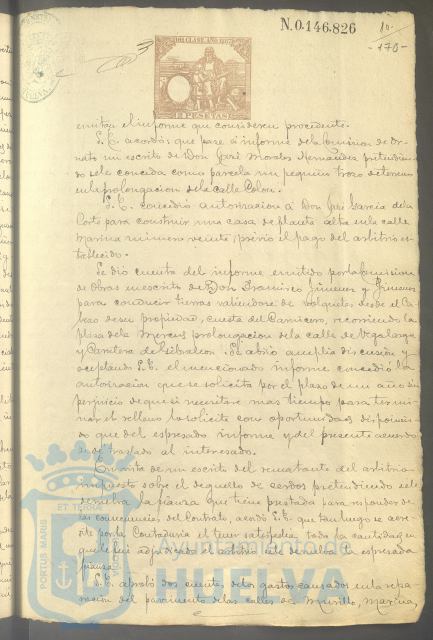 N.0.146.826
10
-170-
10ª CLASE. AÑO 1887
2 PESETAS
emitan el informe que consideren procedente.
S.E. acordó que pase á informe de la Comision de Or-
nato un escrito de Don José Morales Hernandez pretendien-
do se le conceda como parcela un pequeño trozo de terreno
en la prolongacion de la calle Colon.
S.E. concedió autorizacion á Don José Garcia de la
Corte para construir una casa de planta alta en la calle
Marina número veinte, prévio el pago del arbitrio es-
tablecido.
Se dió cuenta del informe emitido por la Comision
de Obras en escrito de Don Francisco Jimenez y Jimenez
para conducir tierras valiendose de volquetes desde el Ca-
bezo de su propiedad, cuesta del Carnicero, recorriendo la
plaza de la Merced, prolongacion de la calle de Vegalarga
y Carretera de Gibraleon. Se abrió amplia discusion y
aceptando S.E. el mencionado informe concedió la
autorizacion que se solicita por el plazo de un año sin
perjuicio de que si necesitare mas tiempo para termi-
nar el relleno lo solicite con oportunidad, disponien-
do que del espresado informe y del presente acuerdo
se dé traslado al interesado.
En vista de un escrito del rematante del arbitrio
impuesto sobre el deguello de cerdos pretendiendo se le
devuelva la fianza que tiene prestada para responder de
las consecuencias del Contrato, acordó S.E. que tan luego se acre-
dite por la Contaduria el tener satisfecha toda la cantidad en
que le fué adjudicado se devuelva la espresada
fianza.
S.E. aprobó dos cuentas de los gastos causados en la repa-
racion del pavimento de las calles de Murillo, Marina,
ET TERRÆ
PORTUS MARIS
Ayuntamiento de
HUELVA